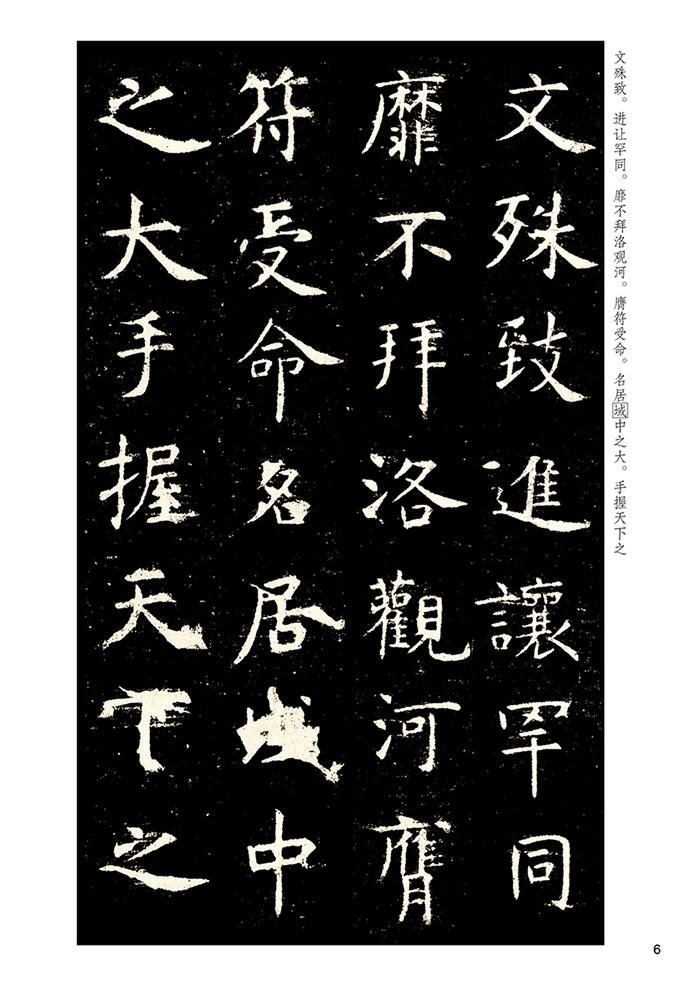 文殊致。进让罕同。靡不拜洛观河。膺符受命。名居域中之大。手握天下之
文殊致進讓罕同
靡不拜洛觀河膺
符受命名居域中
之大手握天下之
6